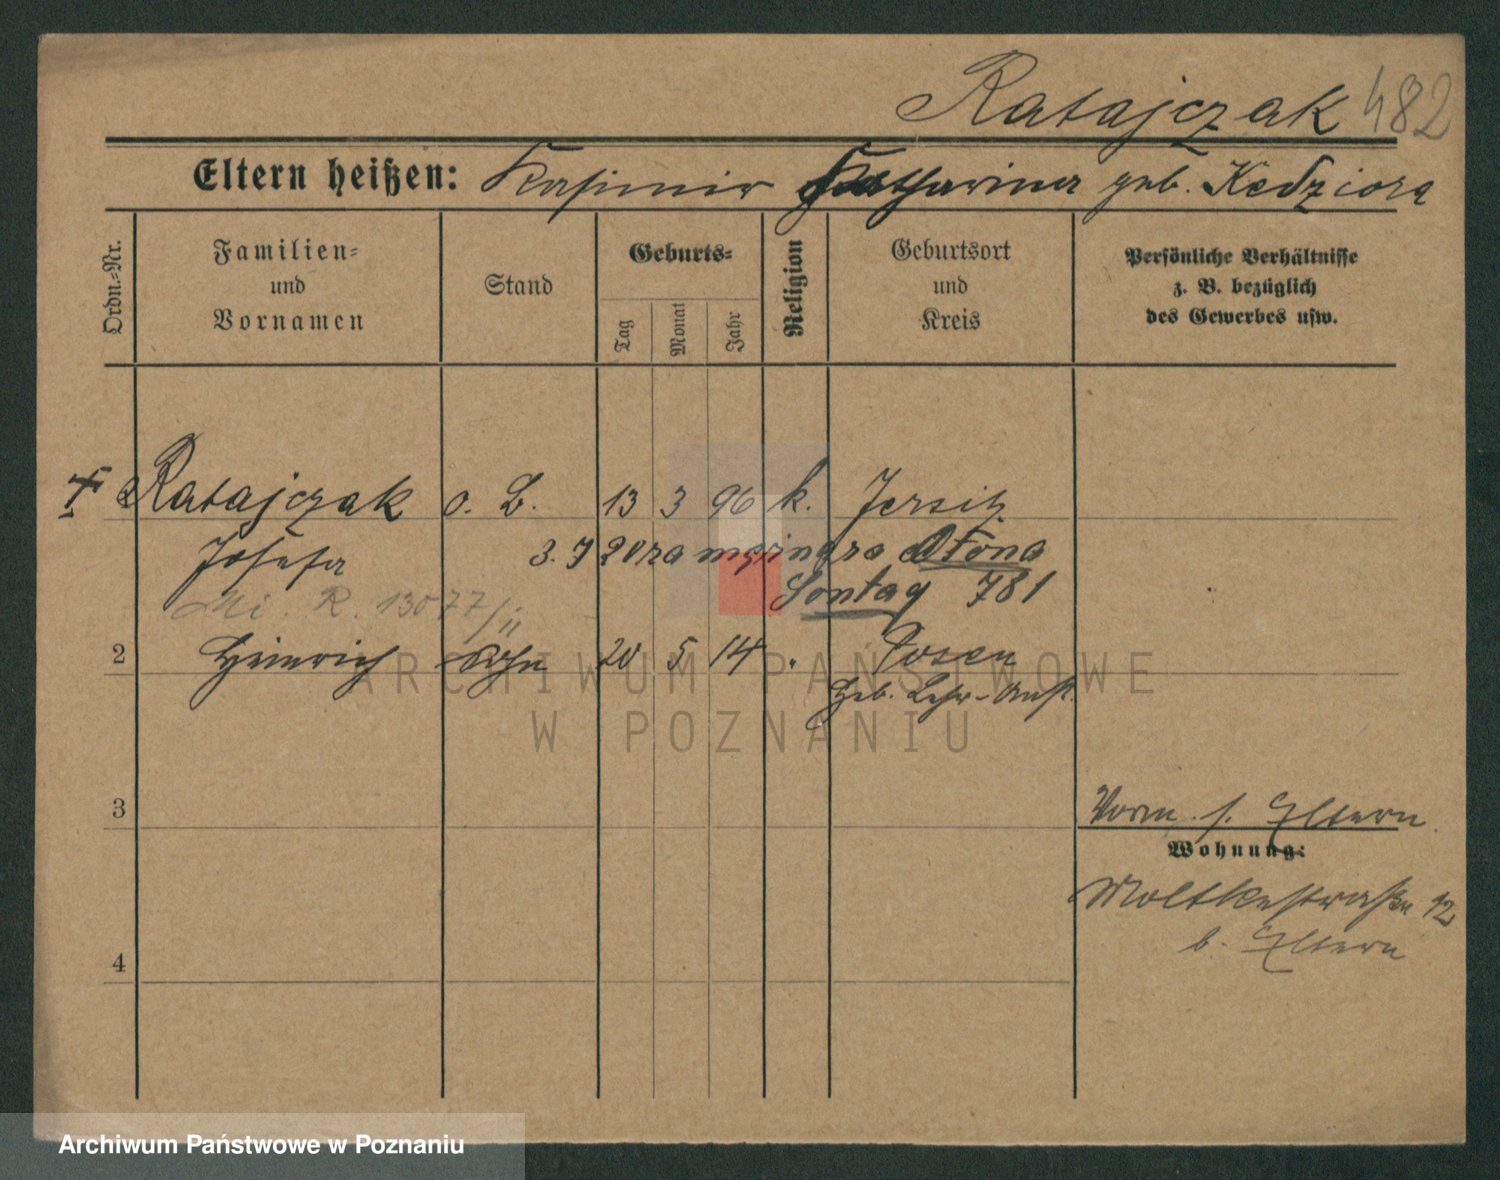 Ratajczak 482
Eltern heißen: Kasimir Katharina geb. Kedziora
Ordn.-Nr.
Familien-
und
Vornamen
Stand
Geburts-
Tag
Monat
Jahr
Religion
Geburtsort
und
Kreis
Persönliche Verhältnisse
z. B. bezüglich
des Gewerbes usw.
Ratajczak o. B. 13 3 96 k. Jersitz
Josefa
3. 7 20
Sontag 781
Mi. R. 13077/II
2 Heinrich Sohn 20 5 14 " Posen
Heb. Lehr-Anst.
3
Vorm. s. Eltern
Wohnung:
Moltkestraße 12
b. Eltern
4
ARCHIWUM PAŃSTWOWE
W POZNANIU
Archiwum Państwowe w Poznaniu